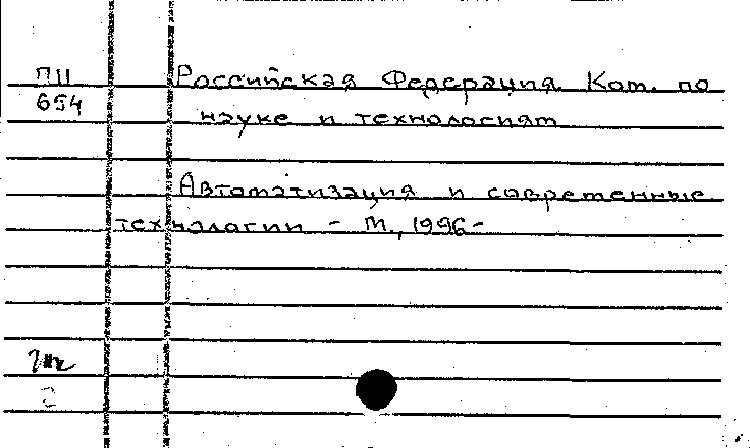 П11 Российская Федерация. Ком. по
654 науке и технологиям
Автоматизация и современные
технологии - М., 1996-